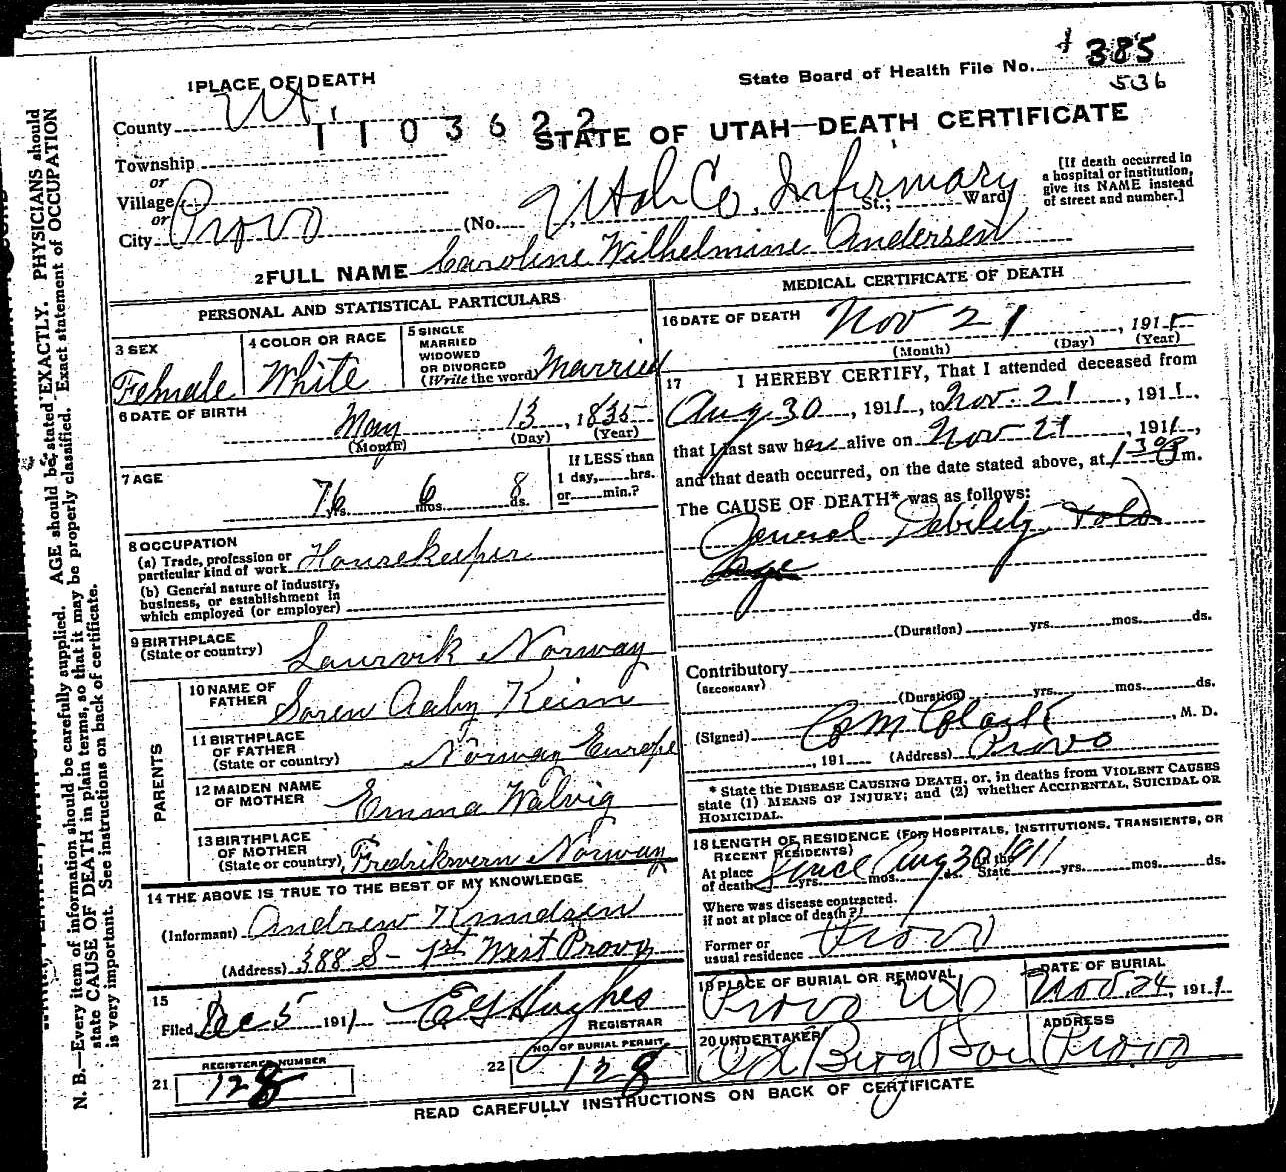 1 PLACE OF DEATH
State Board of Health File No. 385
536
County Ut.
1103622
STATE OF UTAH—DEATH CERTIFICATE
Township
or
Village
or
City Provo
(No. Utah Co. Infirmary St.; Ward)
[If death occurred in
a hospital or institution,
give its NAME instead
of street and number.]
2 FULL NAME Caroline Wilhelmine Andersen
PERSONAL AND STATISTICAL PARTICULARS
3 SEX
Female
4 COLOR OR RACE
White
5 SINGLE
MARRIED
WIDOWED
OR DIVORCED
(Write the word) Married
6 DATE OF BIRTH
May 13, 1835
(Month) (Day) (Year)
7 AGE
76 yrs. 6 mos. 8 ds.
If LESS than
1 day, hrs.
or min.?
8 OCCUPATION
(a) Trade, profession or
particular kind of work Housekeeper
(b) General nature of industry,
business, or establishment in
which employed (or employer)
9 BIRTHPLACE
(State or country) Laurvik Norway
PARENTS
10 NAME OF
FATHER Soren Aaby
11 BIRTHPLACE
OF FATHER
(State or country) Norway Europe
12 MAIDEN NAME
OF MOTHER Emma Walvig
13 BIRTHPLACE
OF MOTHER
(State or country) Fredrikvern Norway
14 THE ABOVE IS TRUE TO THE BEST OF MY KNOWLEDGE
(Informant) Andrew Knudsen
(Address) 388 S - 1st West Provo
15
Filed Dec 5 1911 E G Hughes
REGISTRAR
21 REGISTERED NUMBER
128
22 NO. OF BURIAL PERMIT
128
MEDICAL CERTIFICATE OF DEATH
16 DATE OF DEATH Nov 21, 1911
(Month) (Day) (Year)
17 I HEREBY CERTIFY, That I attended deceased from
Aug 30, 1911, to Nov. 21, 1911.
that I last saw her alive on Nov 21, 1911,
and that death occurred, on the date stated above, at 1 30 P m.
The CAUSE OF DEATH* was as follows:
General Debility, old
age
(Duration) yrs. mos. ds.
Contributory
(SECONDARY)
(Duration) yrs. mos. ds.
(Signed) Clark, M. D.
, 191 (Address) Provo
* State the DISEASE CAUSING DEATH, or, in deaths from VIOLENT CAUSES
state (1) MEANS OF INJURY; and (2) whether ACCIDENTAL, SUICIDAL OR
HOMICIDAL.
18 LENGTH OF RESIDENCE (FOR HOSPITALS, INSTITUTIONS, TRANSIENTS, OR
RECENT RESIDENTS)
At place
of death Since Aug 30 1911 yrs. mos. ds. In the State yrs. mos. ds.
Where was disease contracted.
if not at place of death?
Former or
usual residence Provo
19 PLACE OF BURIAL OR REMOVAL
Provo
DATE OF BURIAL
Nov. 24, 1911
20 UNDERTAKER
Berg
ADDRESS
Provo
READ CAREFULLY INSTRUCTIONS ON BACK OF CERTIFICATE
N. B.—Every item of information should be carefully supplied. AGE should be stated EXACTLY. PHYSICIANS should
state CAUSE OF DEATH in plain terms, so that it may be properly classified. Exact statement of OCCUPATION
is very important. See instructions on back of certificate.